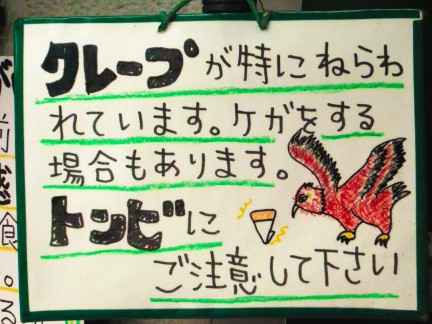 クレープが特にねらわ
れています。ケガをする
場合もあります。
トンビに
ご注意して下さい